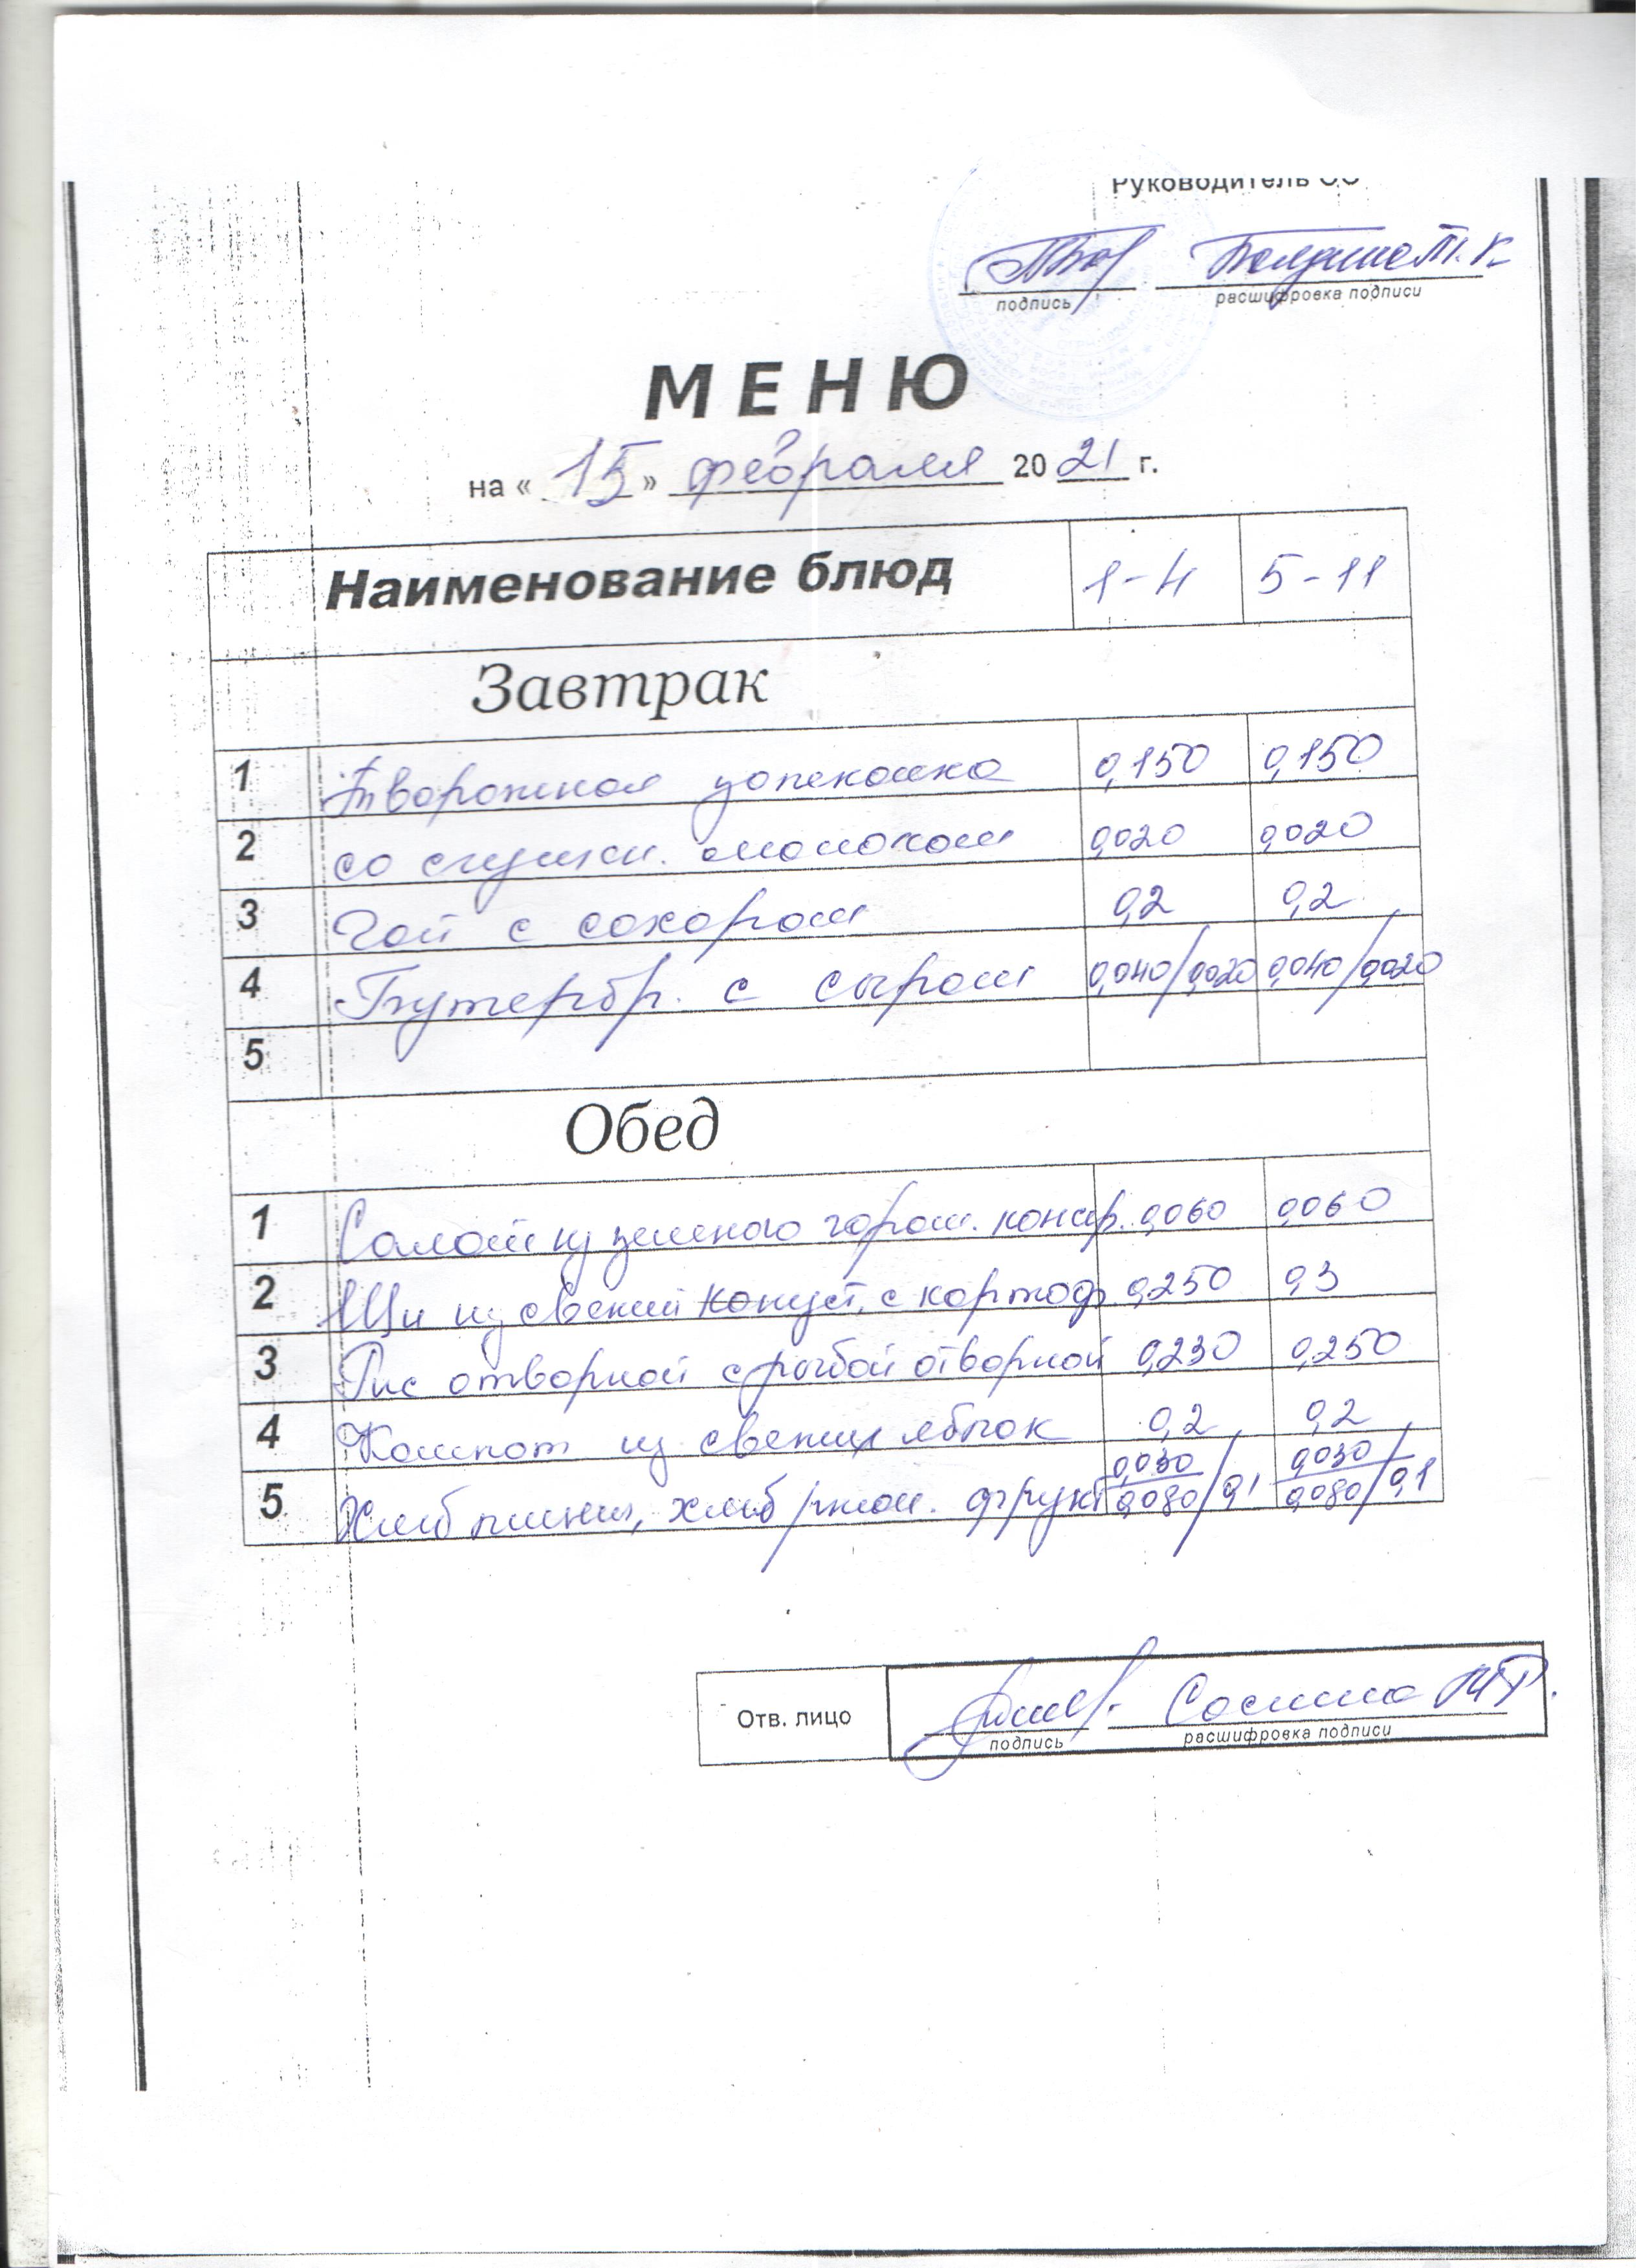 Руководитель ОО
Болдина Т. К.
подпись расшифровка подписи
МЕНЮ
на « 15 » февраля 20 21 г.
Наименование блюд 1-4 5-11
Завтрак
1 Творожная запеканка 0,150 0,150
2 со сгущен. молоком 0,020 0,020
3 Чай с сахаром 0,2 0,2
4 Бутербр. с сыром 0,040/0,020 0,040/0,020
5
Обед
1 Салат из зеленого горош. консер. 0,060 0,060
2 Щи из свежий капуст. с картоф. 0,250 0,3
3 Рис отворной с рыбой отворной 0,230 0,250
4 Компот из свежих яблок 0,2 0,2
5 Хлеб пшен., хлеб ржан. фрукт 0,030/0,080/0,1 0,030/0,080/0,1
Отв. лицо
подпись расшифровка подписи